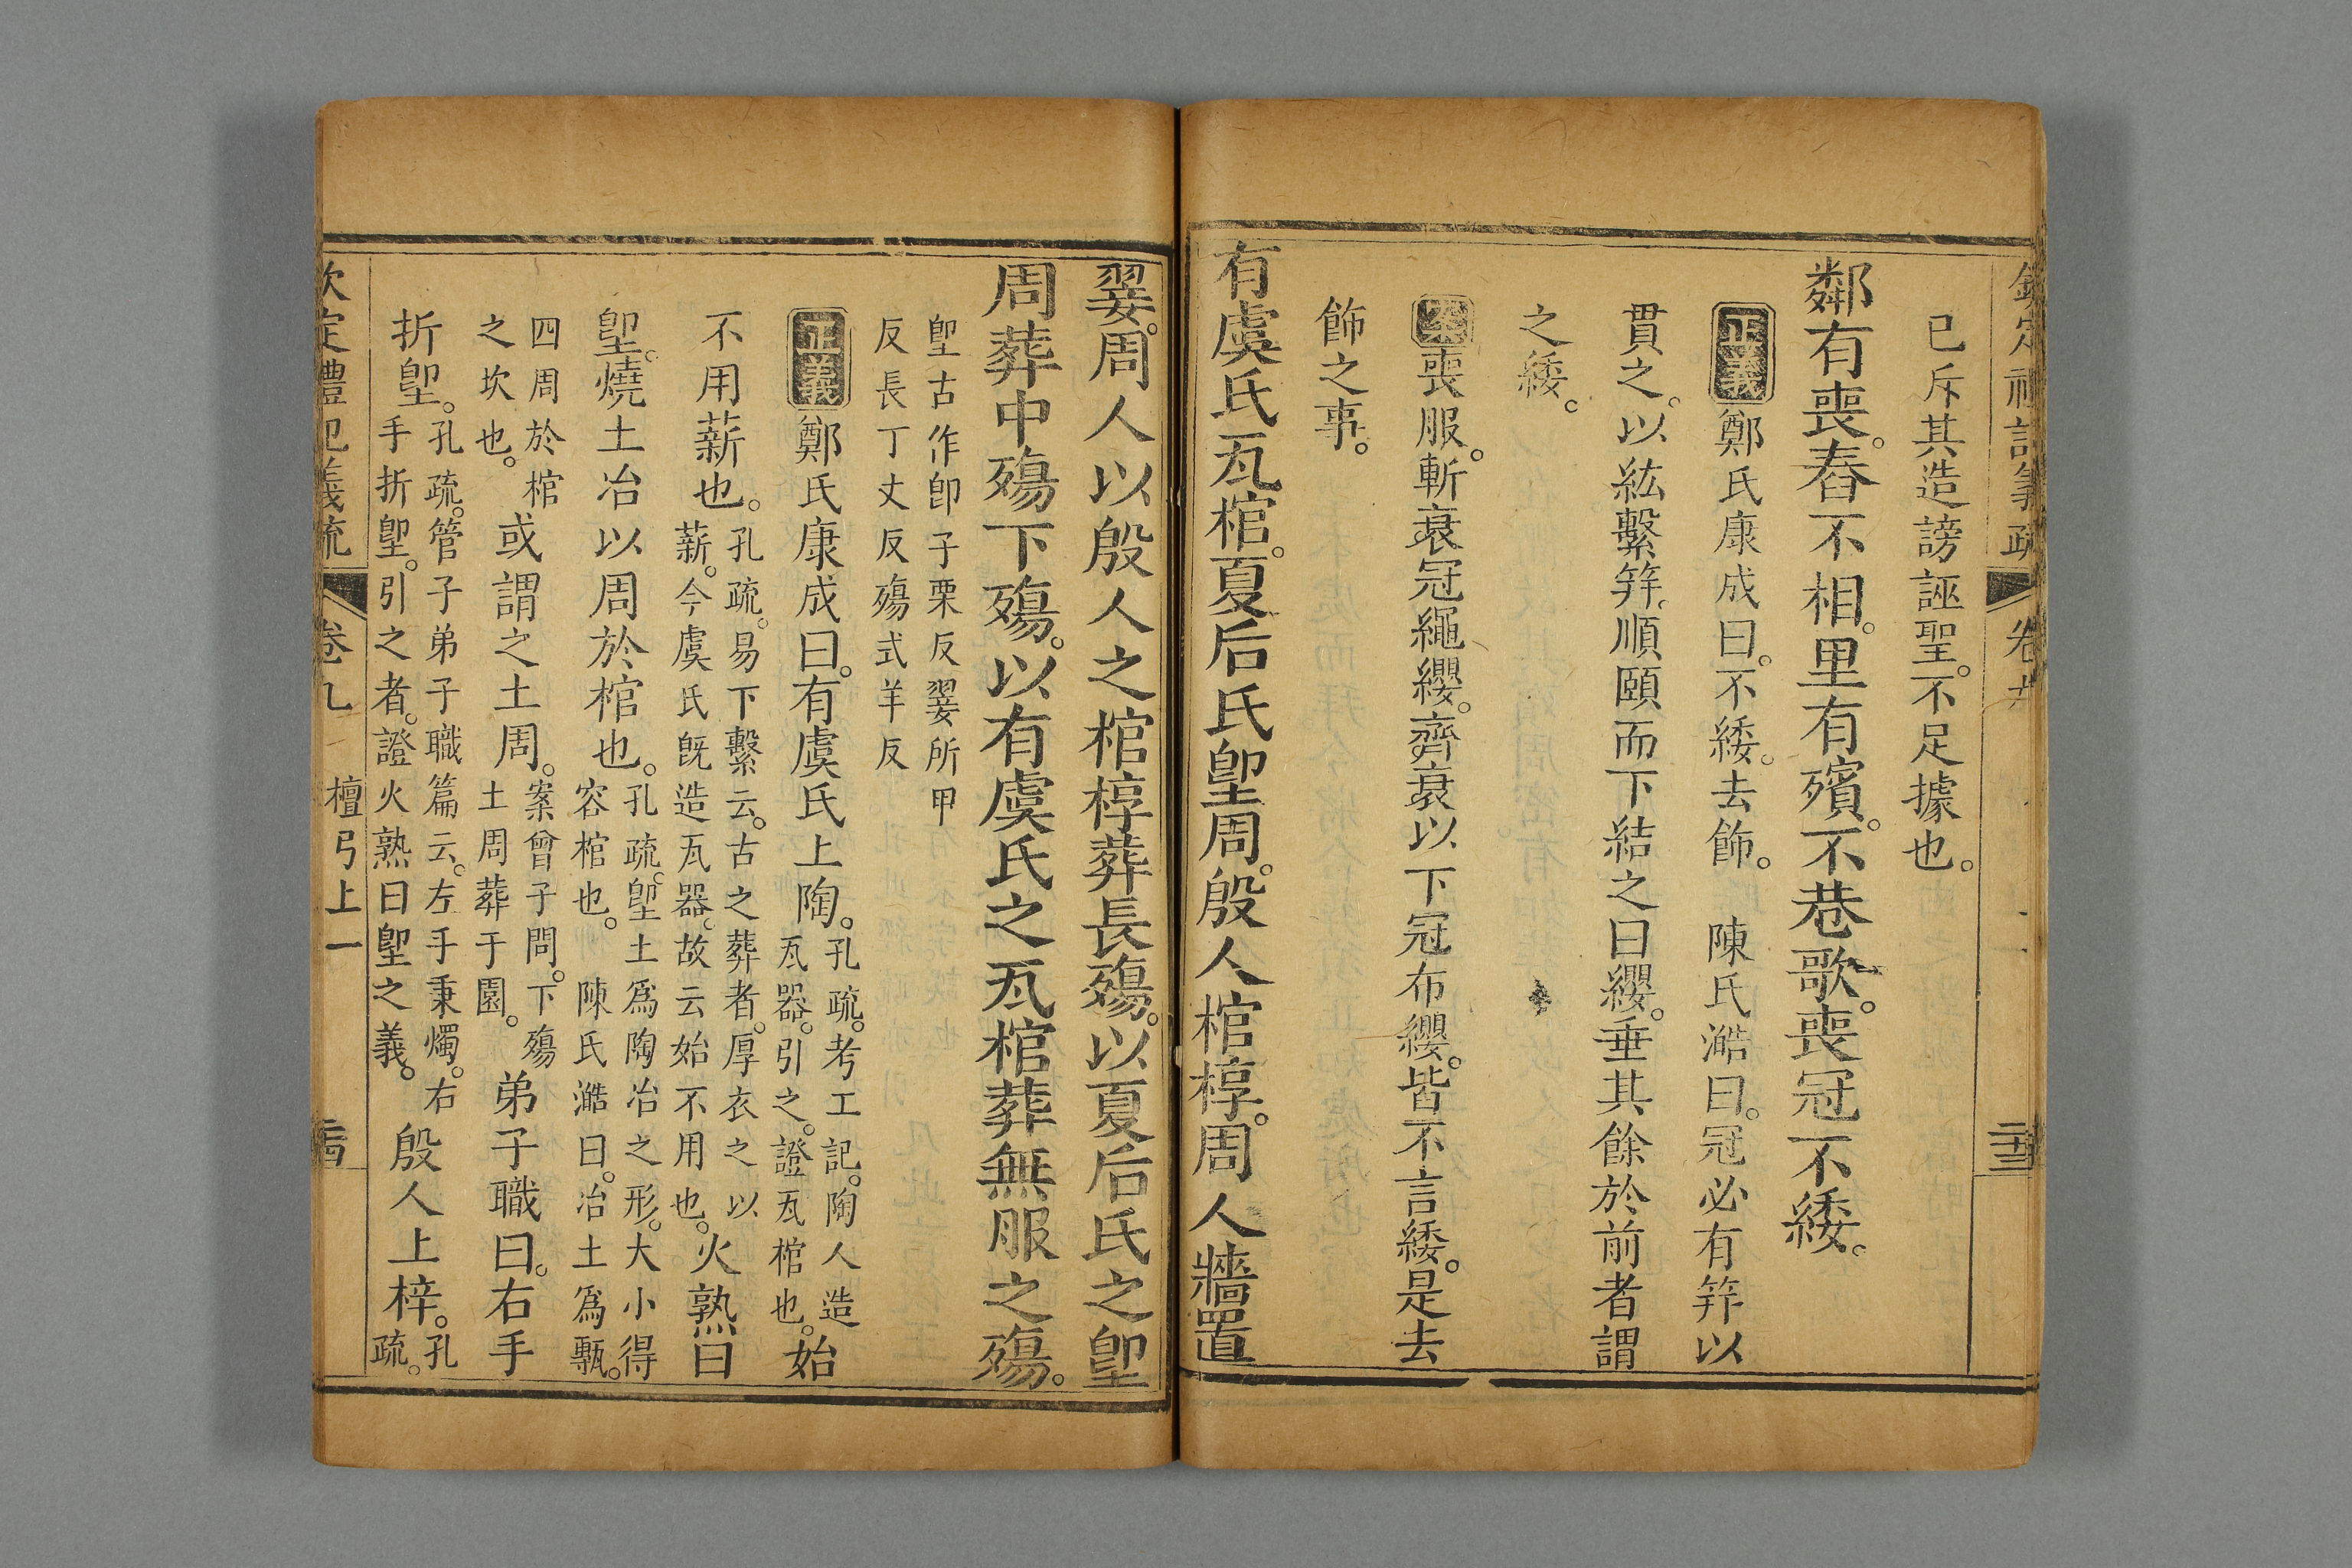 已斥其造謗誣聖。不足據也。
鄰有喪。舂不相。里有殯。不巷歌。喪冠不緌。
正義鄭氏康成曰。不緌。去飾。 陳氏澔曰。冠必有筓以
貫之。以紘繫筓。順頤而下結之曰纓。垂其餘於前者謂
之緌。
案喪服。斬衰冠繩纓。齊衰以下冠布纓。皆不言緌。是去
飾之事。
有虞氏瓦棺。夏后氏堲周。殷人棺椁。周人牆置
翣。周人以殷人之棺椁葬長殤。以夏后氏之堲
周葬中殤下殤。以有虞氏之瓦棺葬無服之殤。
堲古作卽子栗反翣所甲
反長丁丈反殤式羊反
正義鄭氏康成曰。有虞氏上陶。孔疏。考工記。陶人造瓦器。引之。證瓦棺也。始
不用薪也。孔疏。易下繫云。古之葬者。厚衣之以薪。今虞氏旣造瓦器。故云始不用也。火熟曰
堲。燒土冶以周於棺也。孔疏。堲土爲陶冶之形。大小得容棺也。 陳氏澔曰。冶土爲甎。
四周於棺之坎也。或謂之土周。案曾子問。下殤土周葬于園。弟子職曰。右手
折堲。孔疏。管子弟子職篇云。左手秉燭。右手折堲。引之者。證火熟曰堲之義。 殷人上梓。孔疏。
欽定禮記義疏 卷九 檀弓上一